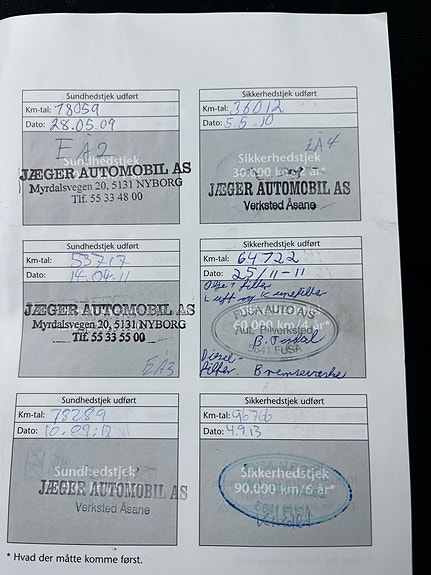 Sundhedstjek udført
Km-tal: 18059
Dato: 28.05.09
EA2
Sundhedstjek
JÆGER AUTOMOBIL AS
Myrdalsvegen 20, 5131 NYBORG
Tlf. 55 33 48 00
Sikkerhedstjek udført
Km-tal: 36012
Dato: 5.5.10
EA4
Sikkerhedstjek
30.000 km/2 år*
JÆGER AUTOMOBIL AS
Verksted Åsane
Sundhedstjek udført
Km-tal: 53717
Dato: 14.04.11
JÆGER AUTOMOBIL AS
Myrdalsvegen 20, 5131 NYBORG
Tlf. 55 33 55 00
EA3
Sikkerhedstjek udført
Km-tal: 64722
Dato: 25/11-11
Olje + filter
Luft og
FUSA AUTO A/S
60.000 km/4 år*
Aut. Bilverksted
5641 FUSA
Diesel-
filter. Bremsevæske
Sundhedstjek udført
Km-tal: 73289
Dato: 10.09.12
Sundhedstjek
JÆGER AUTOMOBIL AS
Verksted Åsane
Sikkerhedstjek udført
Km-tal: 96766
Dato: 4.9.13
Sikkerhedstjek
90.000 km/6 år*
5641 FUSA
* Hvad der måtte komme først.